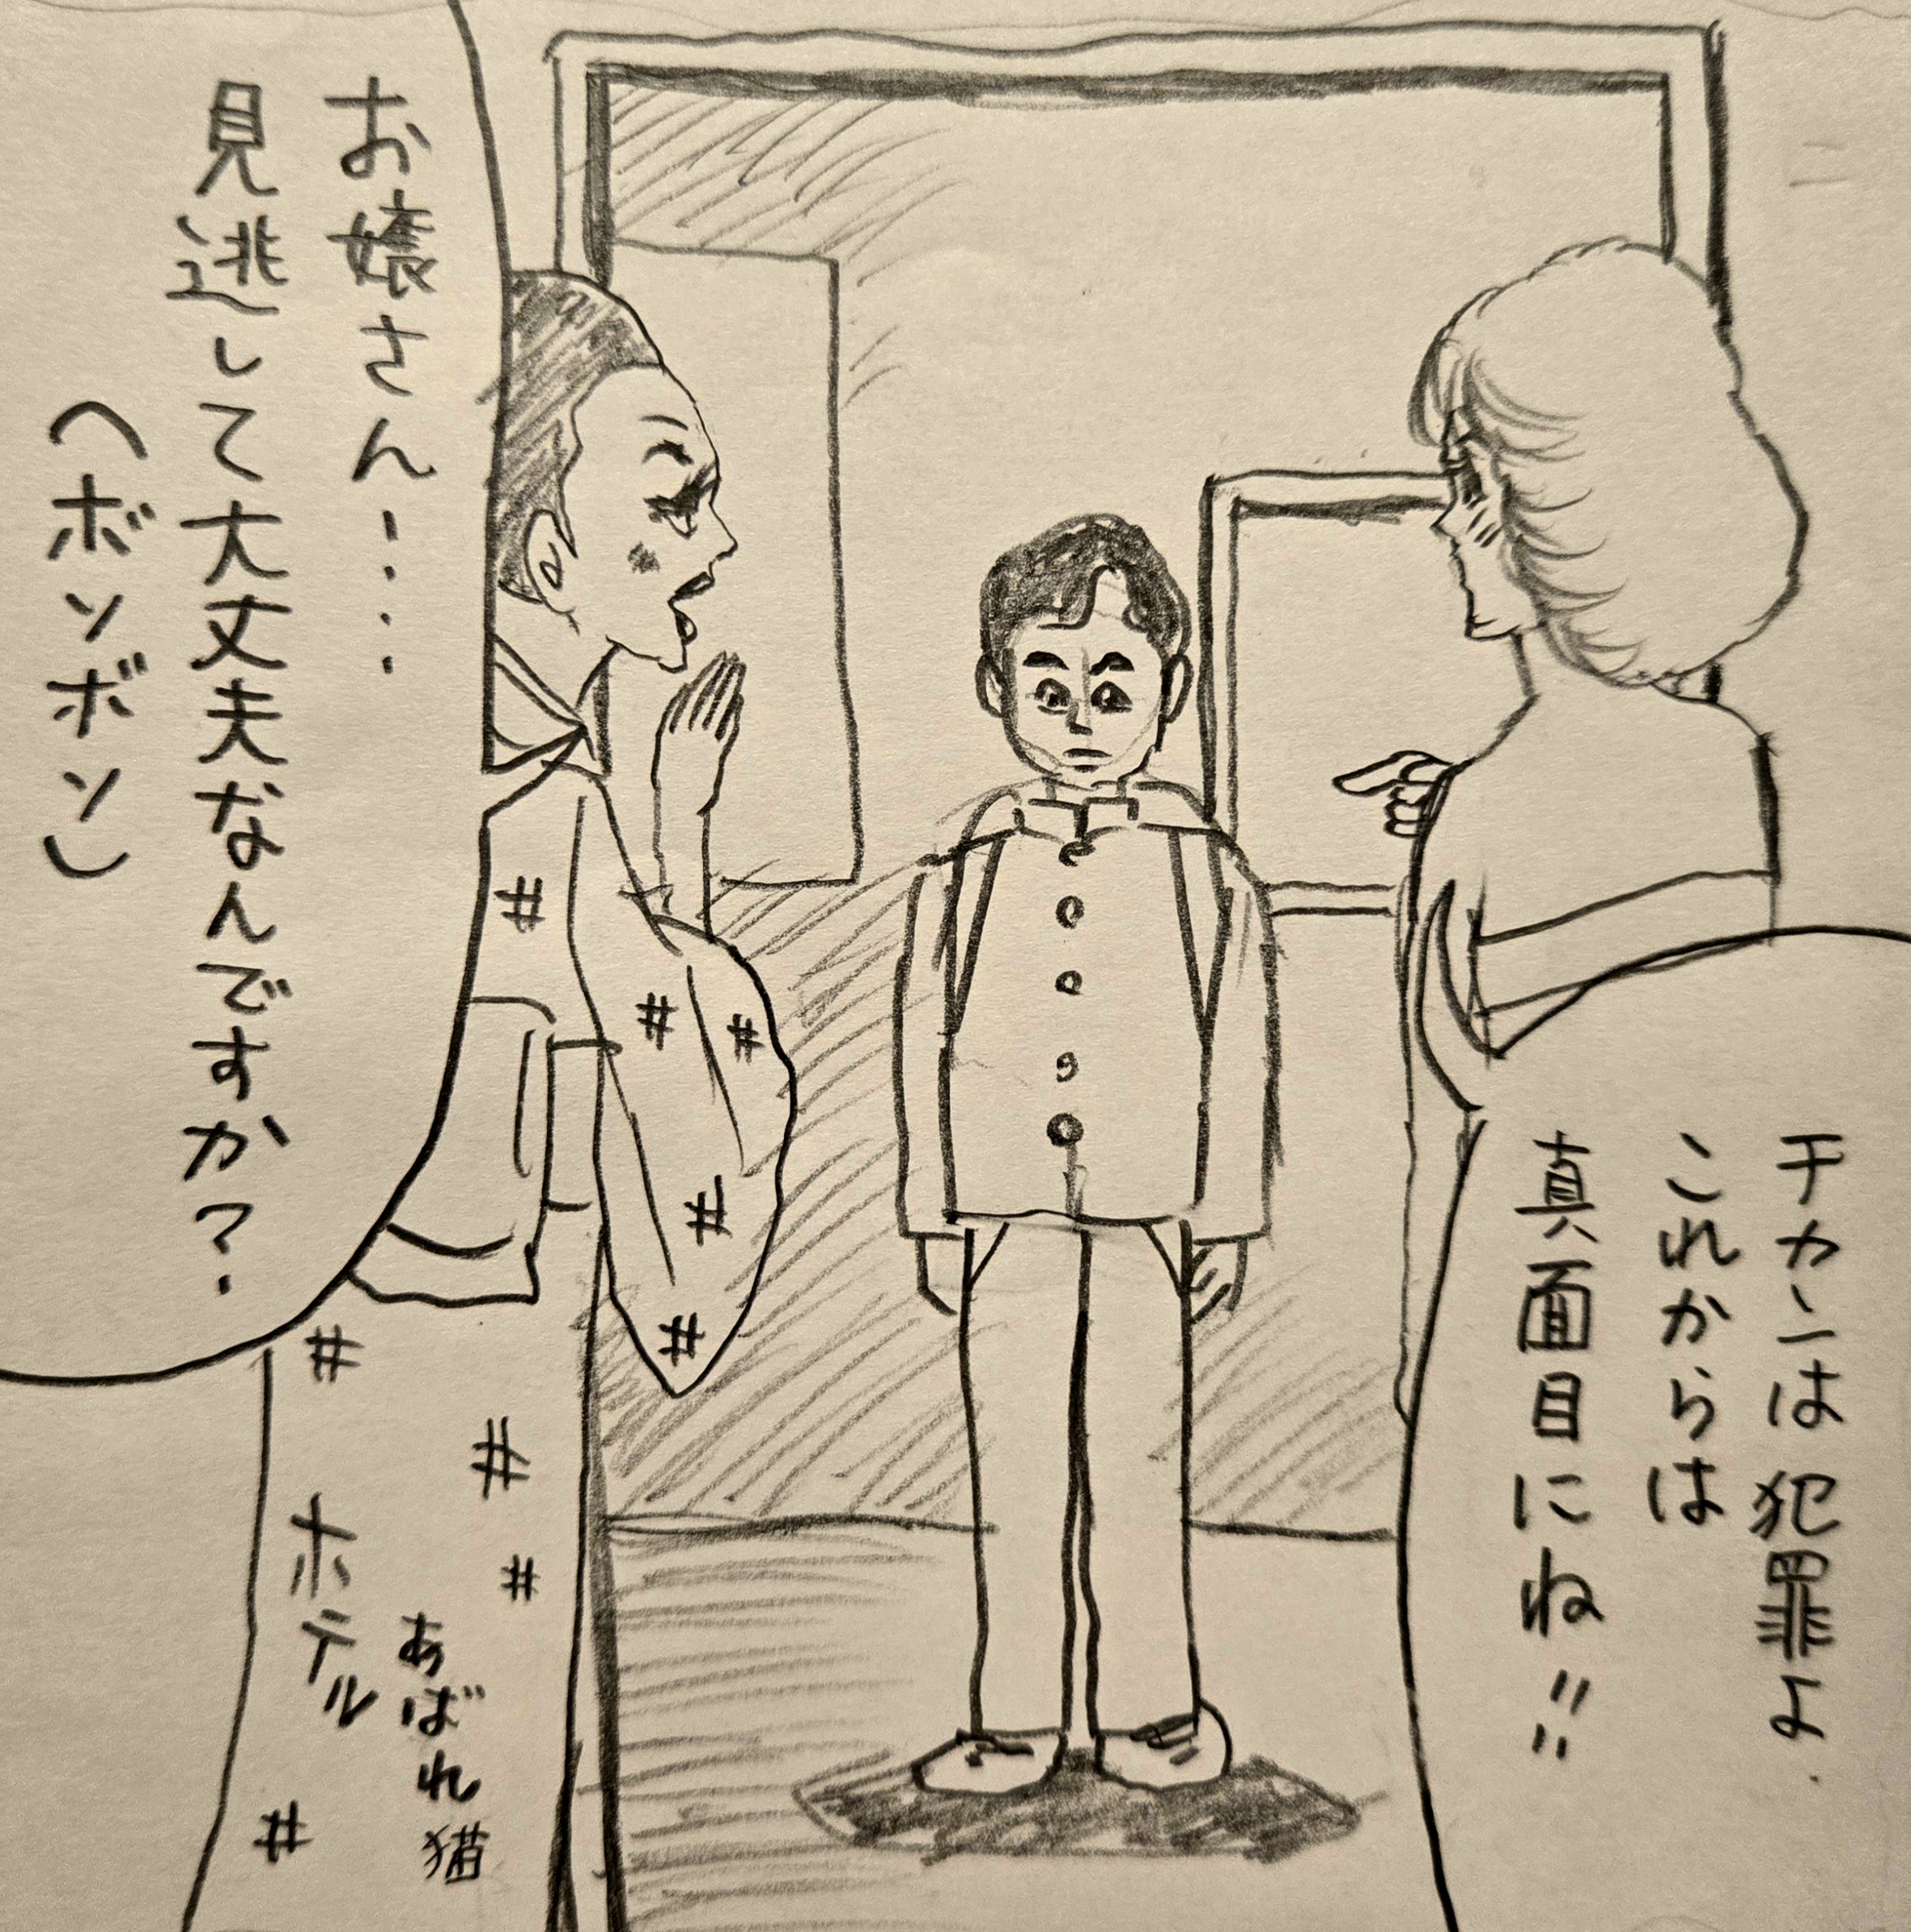 チカンは犯罪よ
これからは
真面目にね!!
お嬢さん……
見逃して大丈夫なんですか?
(ボソボソ)
あばれ猫
ホテル